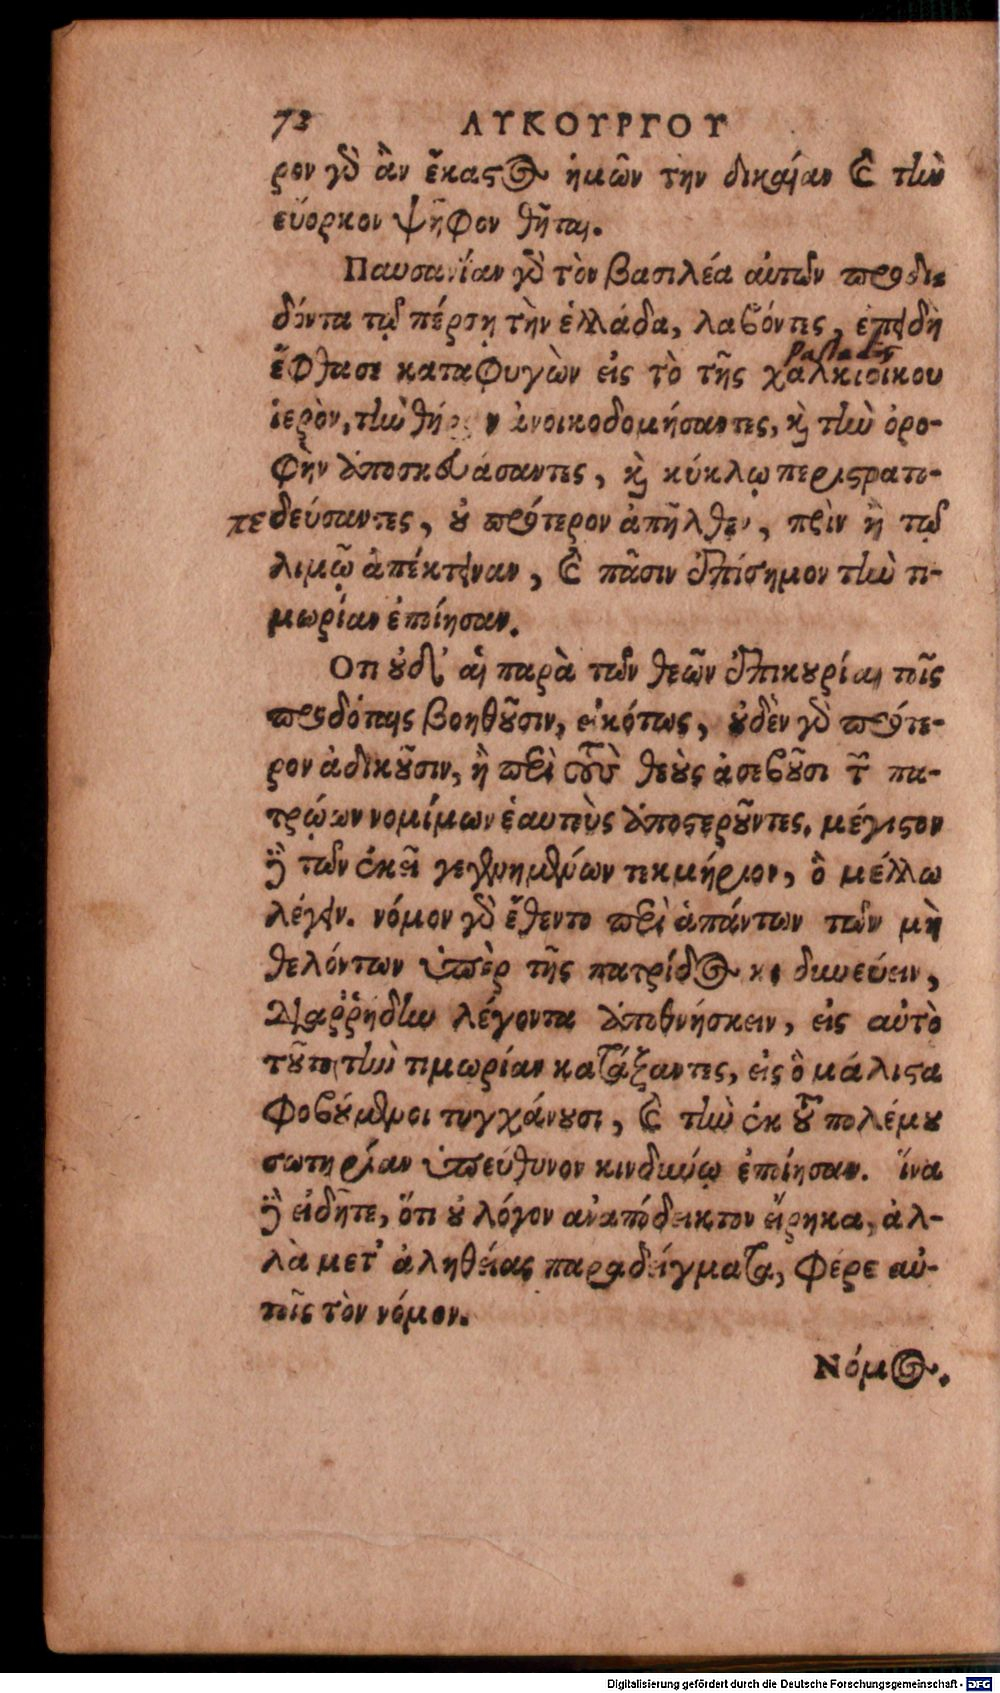 72 ΛΥΚΟΥΡΓΟΥ
ρον γὸ ἂν ἕκαςος ἡμῶν τὴν δικαίαν καὶ τὴν
εὔορκον ψῆφον θῆται.
Παυσανίαν γὸ τὸν βασιλέα αὐτῶν προδι-
δόντα τῷ πέρσῃ τὴν ἑλλάδα, λαβόντες, ἐπειδὴ
Palladis
ἔφθασε καταφυγὼν εἰς τὸ τῆς χαλκιοίκου
ἱερὸν, τὴν θύραν ἀνοικοδομήσαντες, καὶ τὴν ὀρο-
φὴν ἀποσκευάσαντες, καὶ κύκλῳ περιςρατο-
πεδεύσαντες, οὐ πρότερον ἀπῆλθον, πρὶν ἢ τῷ
λιμῷ ἀπέκτειναν, καὶ πᾶσιν ἐπίσημον τὴν τι-
μωρίαν ἐποίησαν.
Οτι οὐδ' αἱ παρὰ τῶν θεῶν ἐπικουρίαι τοῖς
προδόταις βοηθοῦσιν, εἰκότως, οὐδὲν γὸ πρότε-
ρον ἀδικοῦσιν, ἢ περὶ τοὺς θεοὺς ἀσεβοῦσι τῶν πα-
τρῴων νομίμων ἑαυτοὺς ἀποςεροῦντες. μέγιςον
δὲ τῶν ἐκεῖ γεγενημένων τεκμήριον, ὃ μέλλω
λέγειν. νόμον γὸ ἔθεντο περὶ ἁπάντων τῶν μὴ
θελόντων ὑπὲρ τῆς πατρίδος κινδυνεύειν,
διαῤῥήδην λέγοντα ἀποθνήσκειν, εἰς αὐτὸ
τοῦτο τὴν τιμωρίαν κατάξαντες, εἰς ὃ μάλιςα
φοβούμενοι τυγχάνουσι, καὶ τὴν ἐκ τοῦ πολέμου
σωτηρίαν ὑπεύθυνον κινδύνῳ ἐποίησαν. ἵνα
δὲ εἰδῆτε, ὅτι οὐ λόγον ἀναπόδεικτον εἴρηκα, ἀλ-
λὰ μετ' ἀληθείας παραδείγματα, φέρε αὐ-
τοῖς τὸν νόμον.
Νόμος.
Digitalisierung gefördert durch die Deutsche Forschungsgemeinschaft - DFG